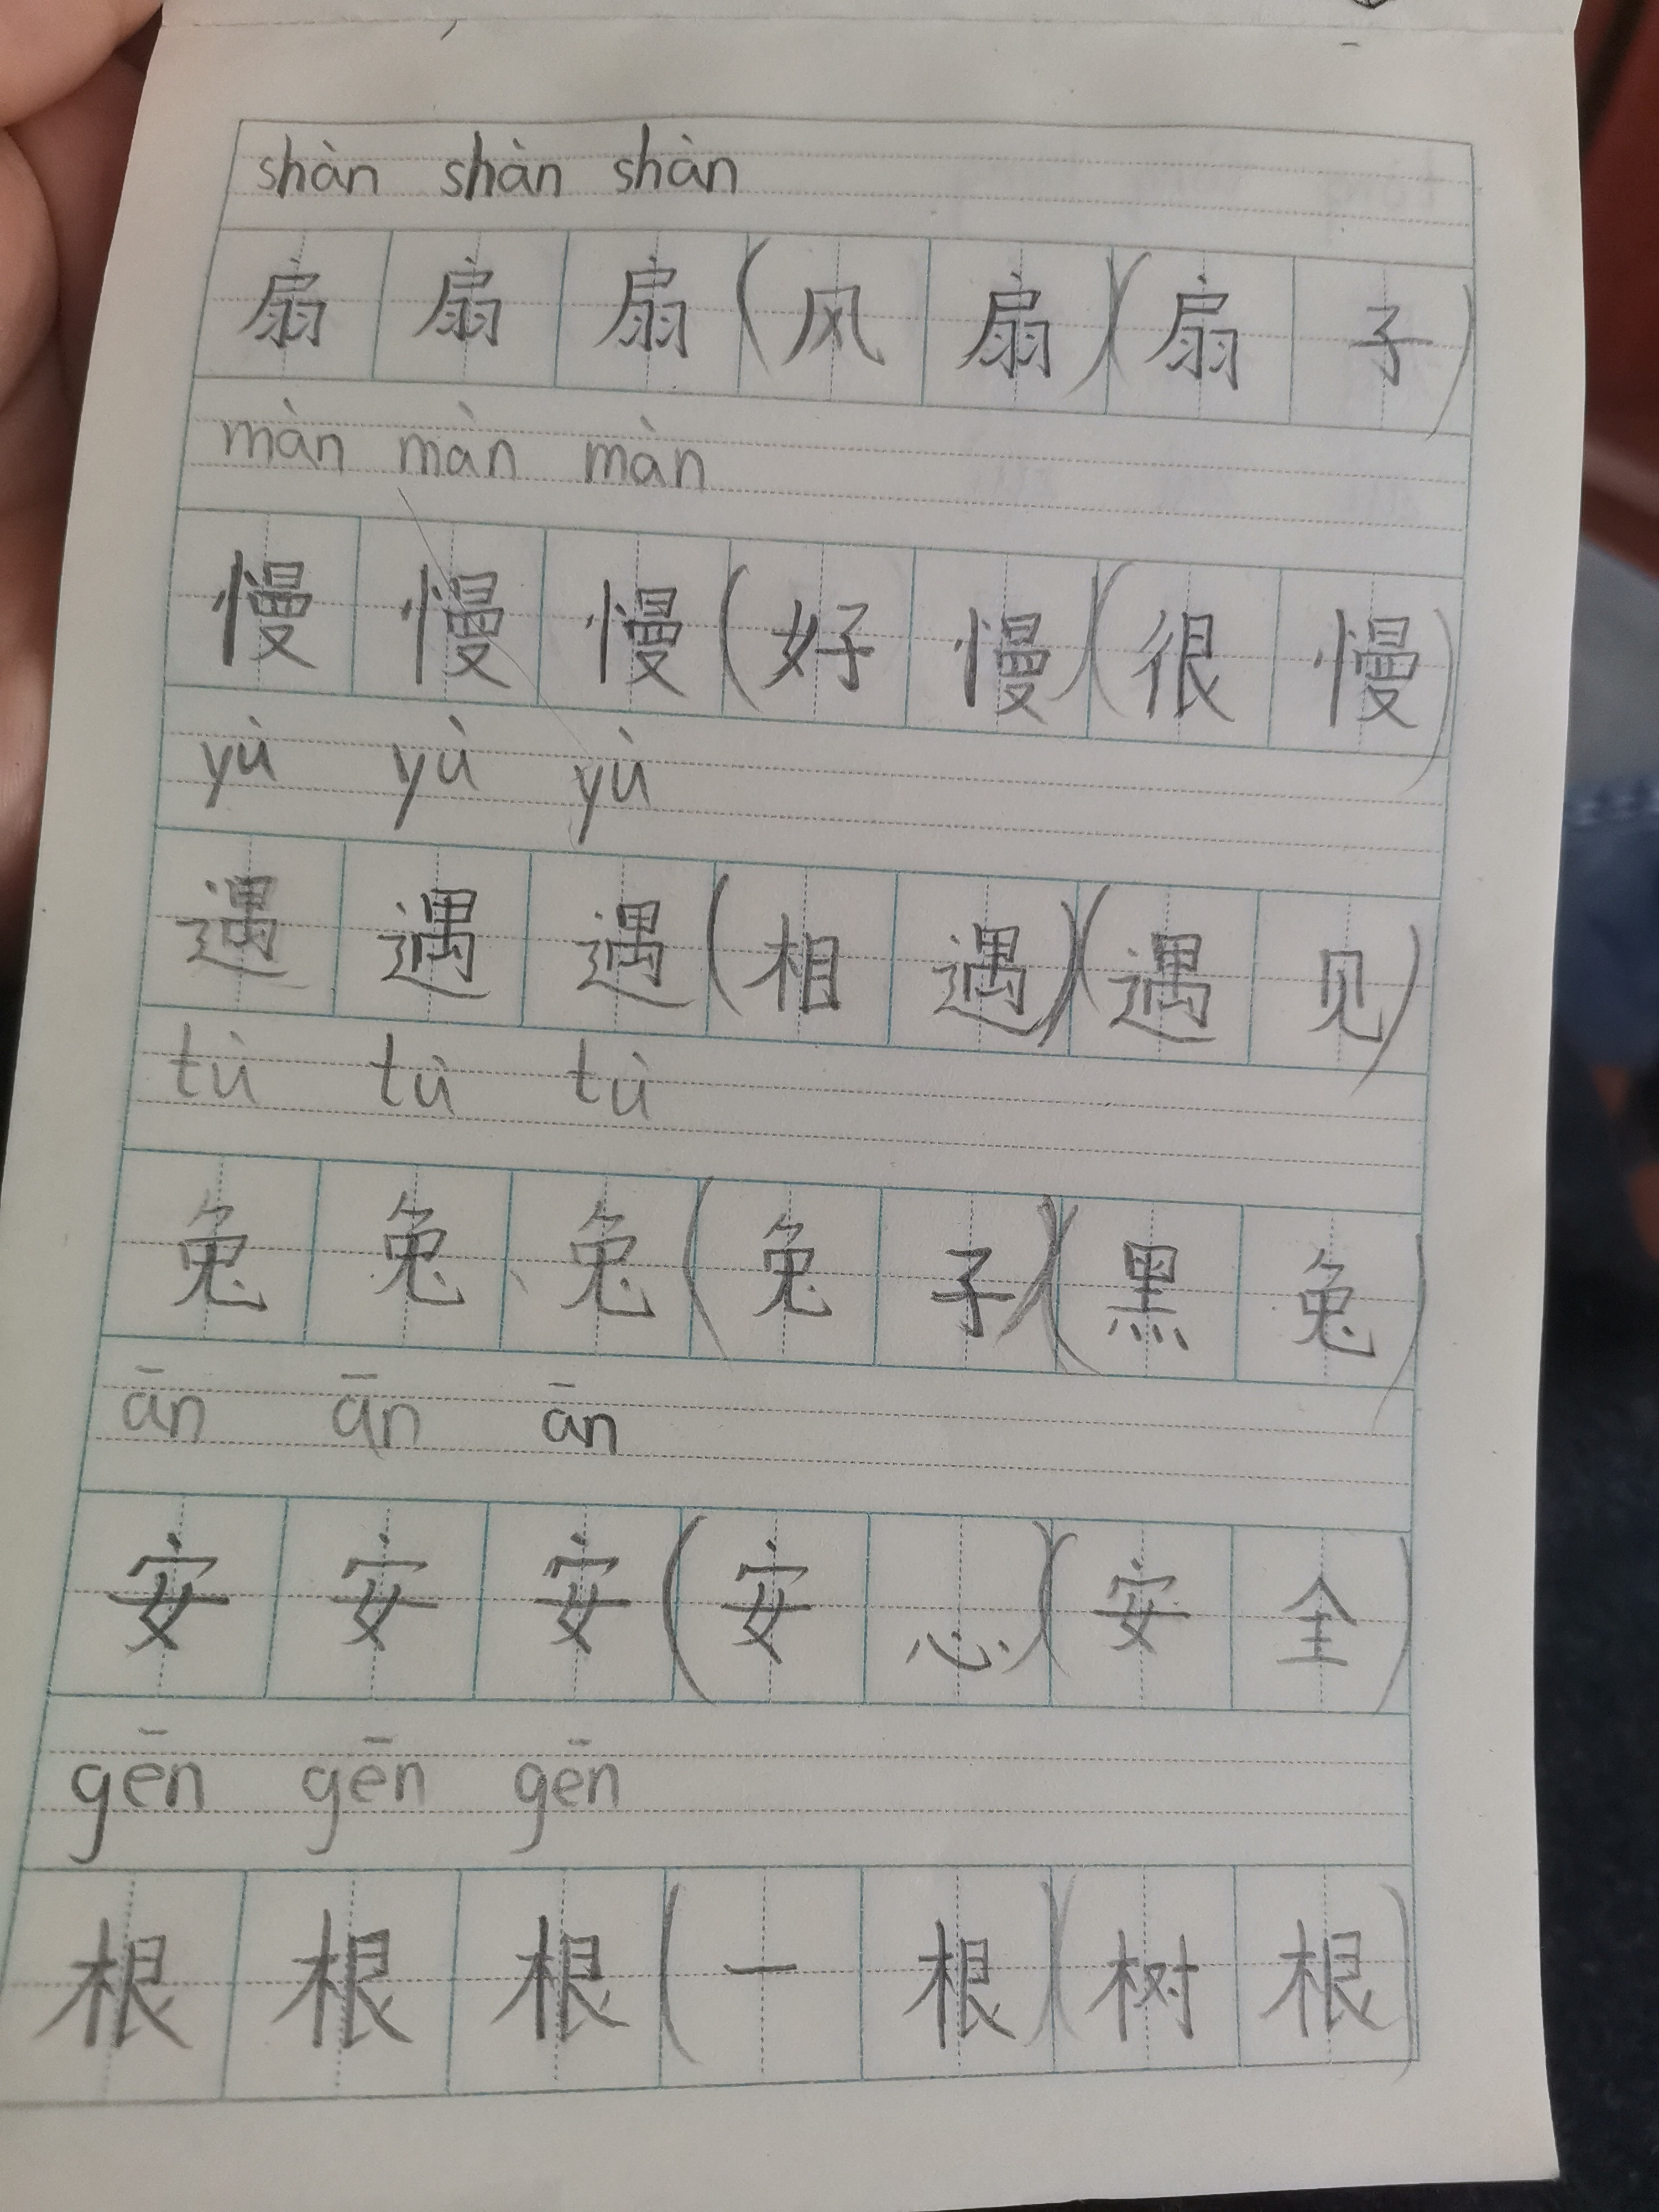 shàn shàn shàn
扇扇扇(风扇)(扇子)
màn màn màn
慢慢慢(好慢)(很慢)
yù yù yù
遇遇遇(相遇)(遇见)
tù tù tù
兔兔兔(兔子)(黑兔)
ān ān ān
安安安(安心)(安全)
gēn gēn gēn
根根根(一根)(树根)